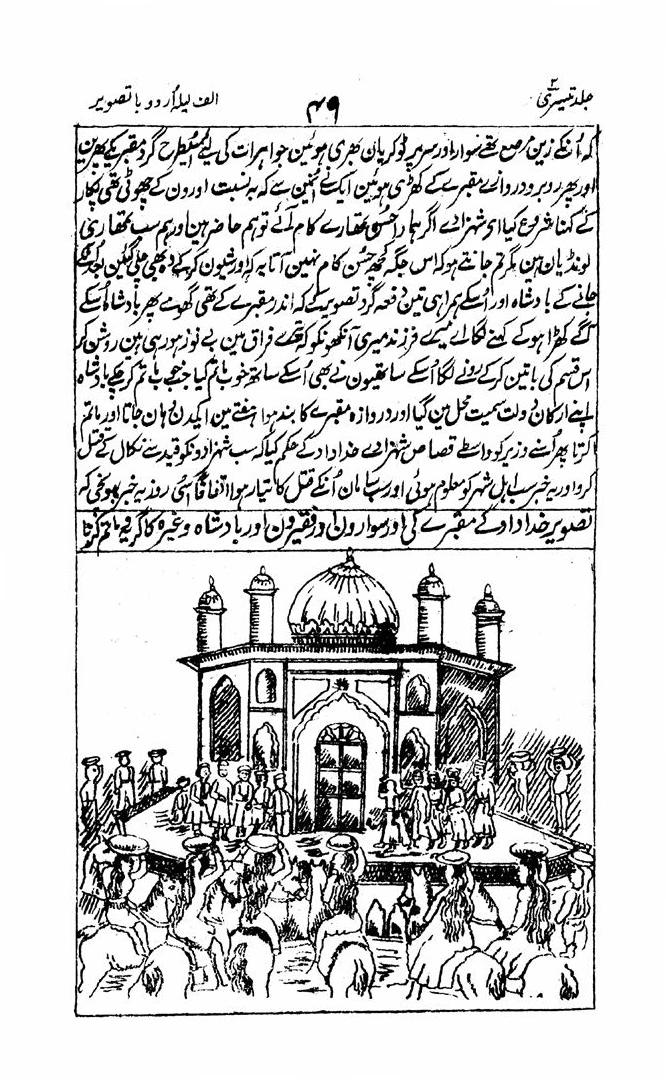 جلد تیسری ۲
۴۹
الف لیلہ اُردو با تصویر
کہ اُنکے زین مرصع تھے سوار اور سر پر ٹوکریان بھری ہوئین جواہرات کی لیے اُسیطرح گرد مقبریکے پھرین
اور پھر روبرو دروازے مقبرے کے کھڑی ہوئین ایک نے اُنمین سے کہ بہ نسبت اورون کے چھوٹی تھی پکار
کے کہنا شروع کیا ای شہزادے اگر ہمارا حسن تمھارے کام آئے تو ہم حاضر ہین اور ہم سب تمھاری
لونڈیان ہین مگر تم جانتے ہو کہ اس جگہ کچھ حسن کام نہین آتا یہ کہ اور شیون کر کے وہ بھی چلی گئین بعد اُنکے
جانے کے بادشاہ اور اُسکے ہمراہی تین دفعہ گرد تصویر کے کہ اندر مقبرے کے تھی گھومے پھر بادشاہ اُسکے
آگے کھڑا ہو کے کہنے لگا اے میرے فرزند میری آنکھونکو کہ تیرے فراق مین بے نور ہو رہی ہین روشن کر
اس قسم کی باتین کر کے رونے لگا اُسکے ساتھیون نے بھی اُسکے ساتھ خوب ماتم کیا جب ماتم کر چکے بادشاہ
اپنے ارکان دولت سمیت محل مین گیا اور دروازہ مقبرے کا بند ہوا ہفتے مین ایکدن وہان جاتا اور ماتم
کرتا پھر اُسنے وزیر کو واسطے قصاص شہزادے خداداد کے حکم کیا کہ سب شہزادونکو قید سے نکال کے قتل
کرو اور یہ خبر سب اہل شہر کو معلوم ہوئی اور سب سامان اُنکے قتل کا تیار ہوا اتفاقاً اُسی روز یہ خبر پہونچی کہ
تصویر خداداد کے مقبرے کی اور سوارون اور فقیرون اور بادشاہ وغیرہ کا گریہ ماتم کرنا